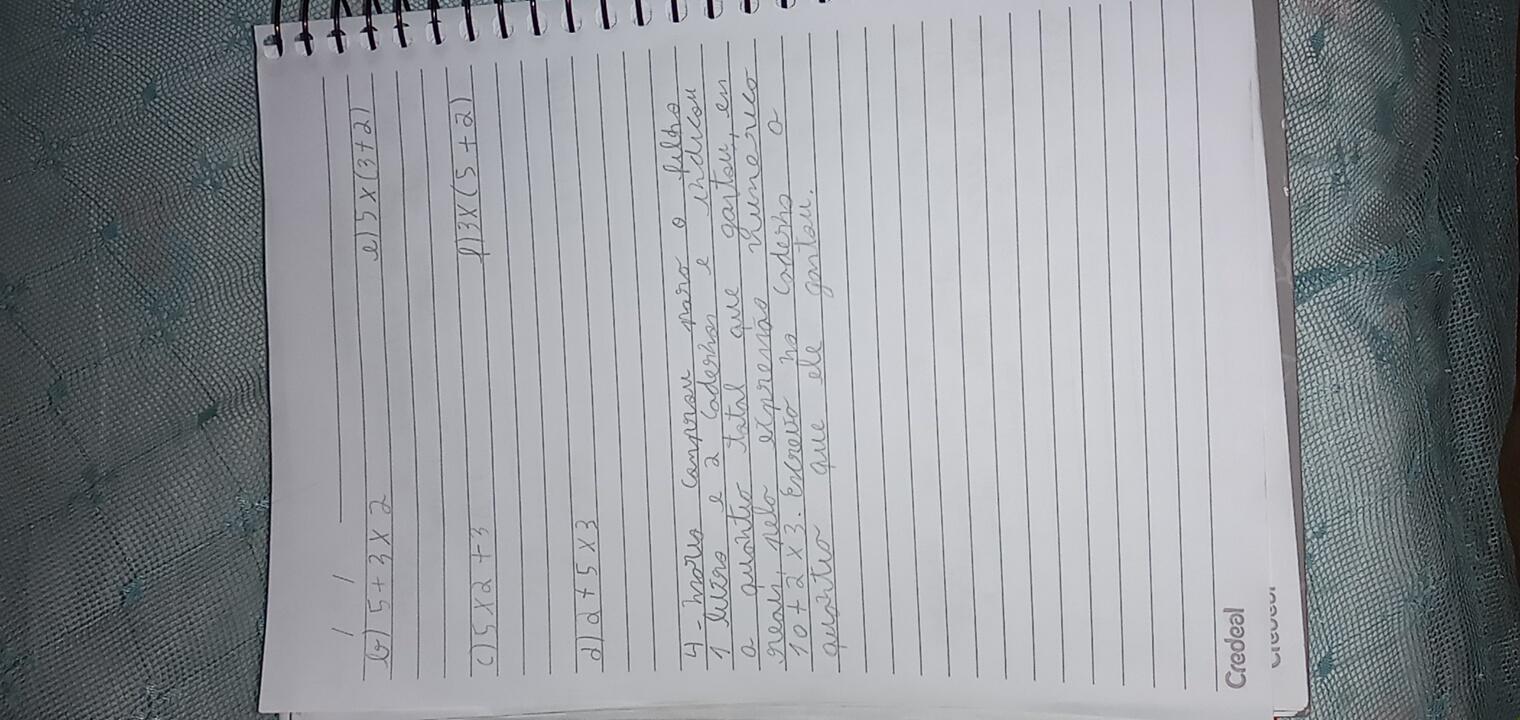 / /
b) 5 + 3 x 2 e) 5 x (3 + 2)
c) 5 x 2 + 3 f) 3 x (5 + 2)
d) 2 + 5 x 3
4 - comprou para o filho
1 livro e 2 cadernos e indicou
a quantia total que gastou, en
reais, pela expressão numerico
10 + 2 x 3. Escreva no caderno a
quantia que ele gastou.
Credeal
Credeal